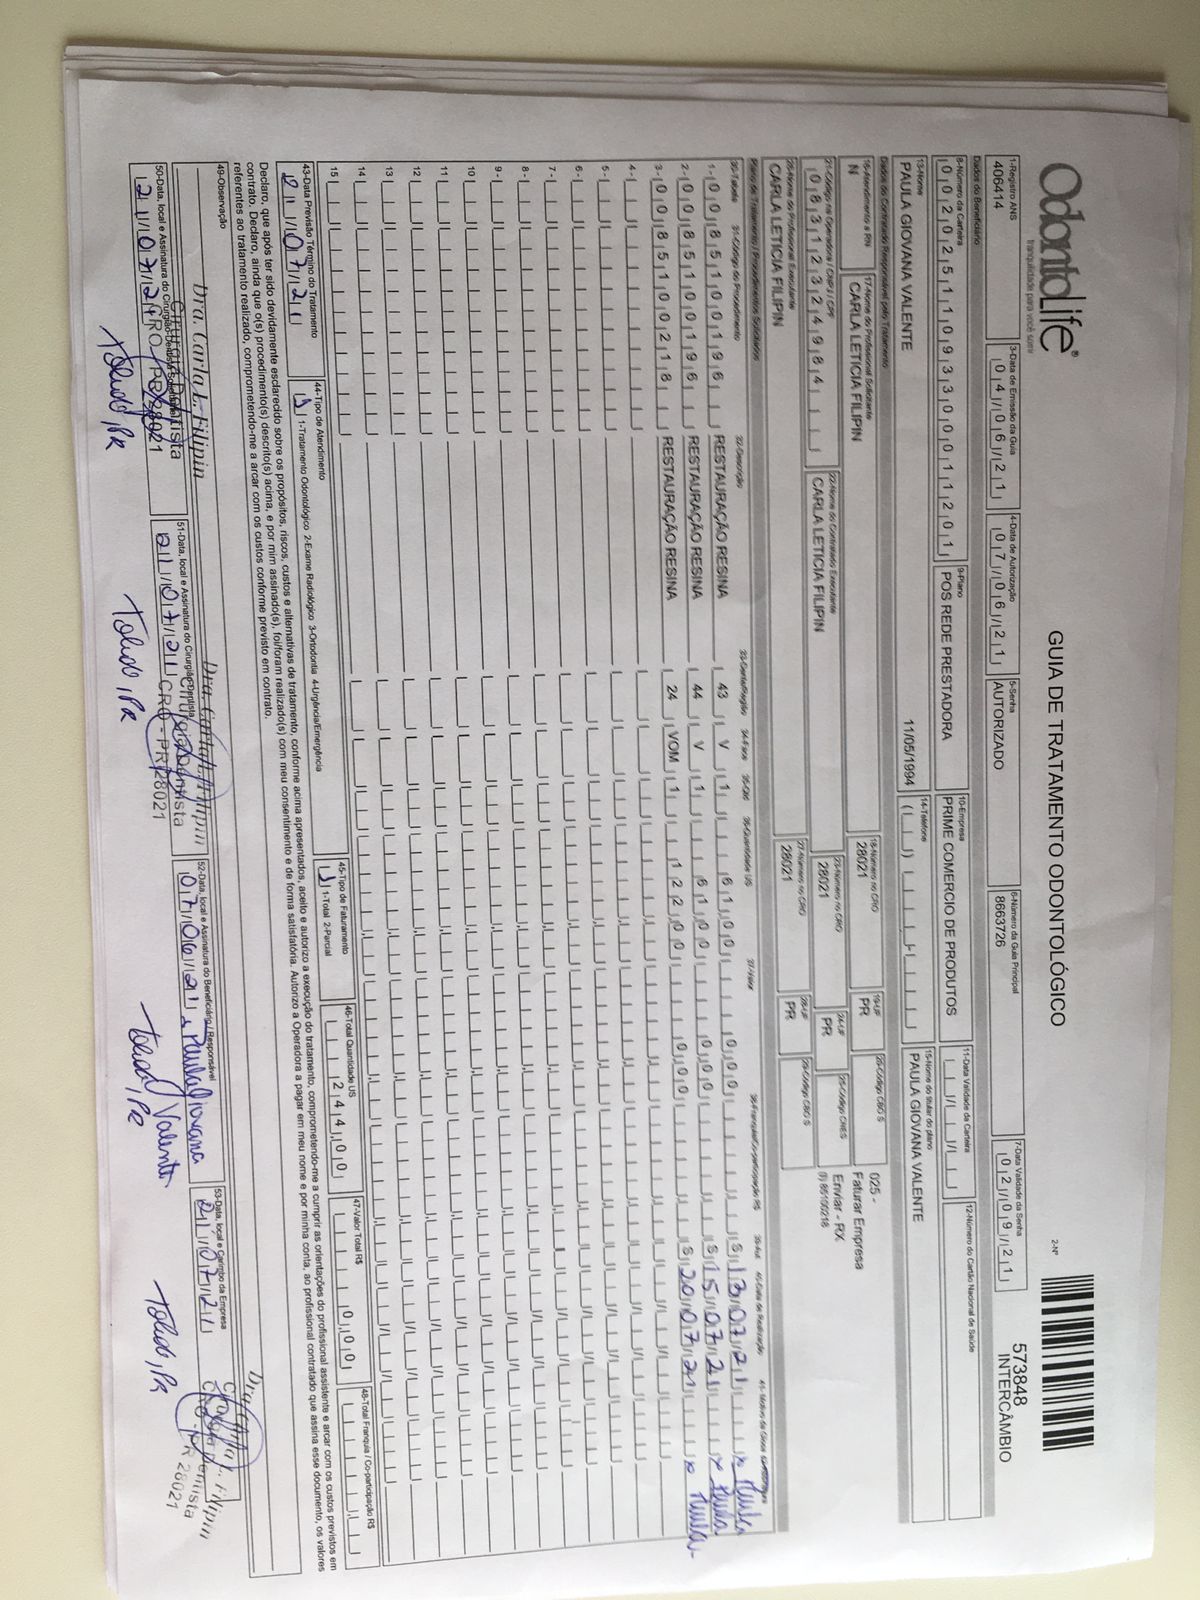 OdontoLife®
tranquilidade para você sorrir
GUIA DE TRATAMENTO ODONTOLÓGICO
2-Nº
573848
INTERCÂMBIO
1-Registro ANS 3-Data de Emissão da Guia 4-Data de Autorização 5-Senha 6-Número da Guia Principal 7-Data Validade da Senha
406414 04/06/21 07/06/21 AUTORIZADO 8663726 02/09/21
Dados do Beneficiário
8-Número da Carteira 9-Plano 10-Empresa 11-Data Validade da Carteira 12-Número do Cartão Nacional de Saúde
00202511093300011201 POS REDE PRESTADORA PRIME COMERCIO DE PRODUTOS
13-Nome 14-Telefone 15-Nome do titular do plano
PAULA GIOVANA VALENTE 11/05/1994 PAULA GIOVANA VALENTE
Dados do Contratado Responsável pelo Tratamento
16-Atendimento a RN 17-Nome do Profissional Solicitante 18-Número no CRO 19-UF 20-Código CBO S
N CARLA LETICIA FILIPIN 28021 PR
025 -
Faturar Empresa
21-Código na Operadora / CNPJ / CPF 22-Nome do Contratado Executante 23-Número no CRO 24-UF 25-Código CNES
08312324984 CARLA LETICIA FILIPIN 28021 PR
Enviar - RX
(I) 85100218
26-Nome do Profissional Executante 27-Número no CRO 28-UF 29-Código CBO S
CARLA LETICIA FILIPIN 28021 PR
Plano de Tratamento / Procedimentos Solicitados
30-Tabela 31-Código do Procedimento 32-Descrição 33-Dente/Região 34-Face 35-Qtd 36-Quantidade US 37-Valor 38-Franquia/Co-participação R$ 39-Aut 40-Data de Realização
1- 00 85100196 RESTAURAÇÃO RESINA 43 V 1 61,00 0,00 S 13/07/21 x Paula
2- 00 85100196 RESTAURAÇÃO RESINA 44 V 1 61,00 0,00 S 15/07/21 x Paula
3- 00 85100218 RESTAURAÇÃO RESINA 24 VOM 1 122,00 0,00 S 20/07/21 x Paula
4-
5-
6-
7-
8-
9-
10
11
12
13
14
15
43-Data Previsão Término do Tratamento 44-Tipo de Atendimento 45-Tipo de Faturamento 46-Total Quantidade US 47-Valor Total R$ 48-Total Franquia / Co-participação R$
21/07/21 1-Tratamento Odontológico 2-Exame Radiológico 3-Ortodontia 4-Urgência/Emergência 1-Total 2-Parcial 244,00 0,00
Declaro, que após ter sido devidamente esclarecido sobre os propósitos, riscos, custos e alternativas de tratamento, conforme acima apresentados, aceito e autorizo a execução do tratamento, comprometendo-me a cumprir as orientações do profissional assistente e arcar com os custos previstos em
contrato. Declaro, ainda que o(s) procedimento(s) descrito(s) acima, e por mim assinado(s), foi/foram realizado(s) com meu consentimento e de forma satisfatória. Autorizo a Operadora a pagar em meu nome e por minha conta, ao profissional contratado que assina esse documento, os valores
referentes ao tratamento realizado, comprometendo-me a arcar com os custos conforme previsto em contrato.
49-Observação
Dra. Carla L. Filipin
Cirurgiã Dentista
CRO - PR 28021
Dra. Carla L. Filipin
Cirurgiã Dentista
CRO - PR 28021
Dra. Carla L. Filipin
Cirurgiã Dentista
CRO - PR 28021
50-Data, local e Assinatura do Cirurgião-Dentista Solicitante 51-Data, local e Assinatura do Cirurgião-Dentista 52-Data, local e Assinatura do Beneficiário / Responsável 53-Data, local e Carimbo da Empresa
21/07/21 21/07/21 07/06/21 x Paula Giovana Valente 21/07/21
Toledo, PR Toledo, PR Toledo, PR Toledo, PR